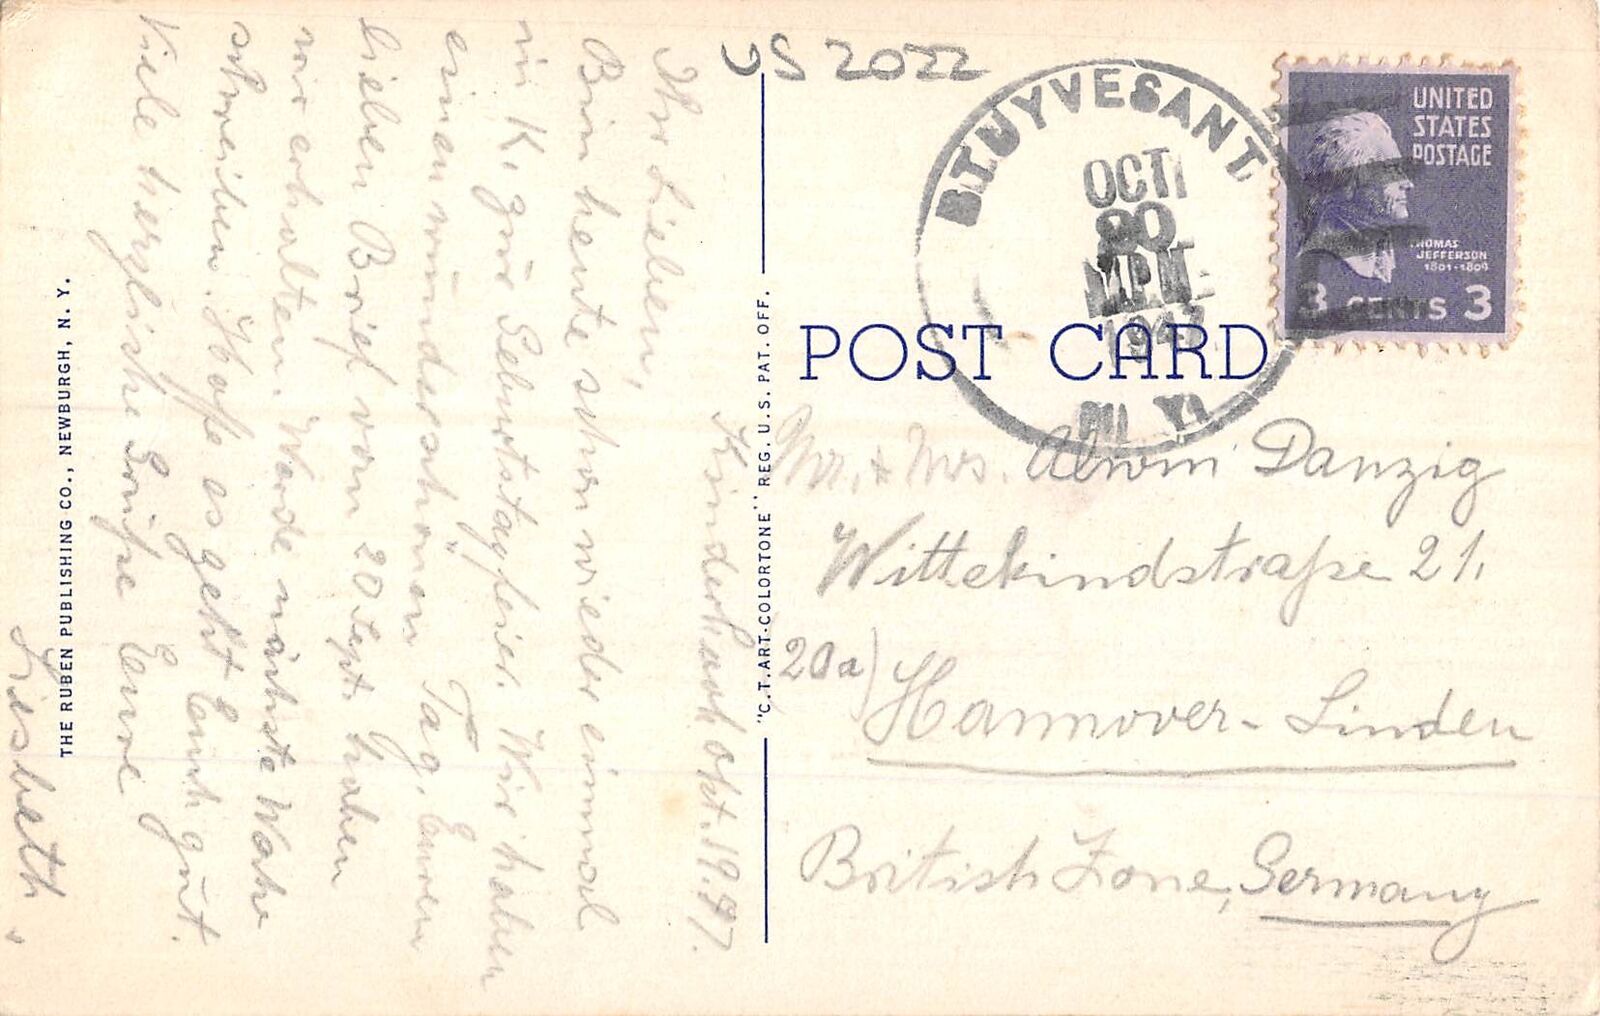 US 2022
Kinderhook Okt. 19. 47.
Ihr Lieben,
Bin heute schon wieder einmal
in K. zur Geburtstagfeier. Wir haben
einen wunderschönen Tag, Euren
lieben Brief vom 20 Sept. haben
wir erhalten. Werde nächste Woche
schreiben. Hoffe es geht Euch gut.
Viele herzliche Grüße Eure
Lisbeth.
THE RUBEN PUBLISHING CO., NEWBURGH, N. Y.
"C.T. ART-COLORTONE" REG. U.S. PAT. OFF.
STUYVESANT
OCT
P.M.
1947
N. Y.
UNITED
STATES
POSTAGE
THOMAS
JEFFERSON
1801-1809
3 CENTS 3
POST CARD
Mr. + Mrs. Alwin Danzig
Wittekindstraße 21.
20a) Hannover-Linden
British Zone, Germany